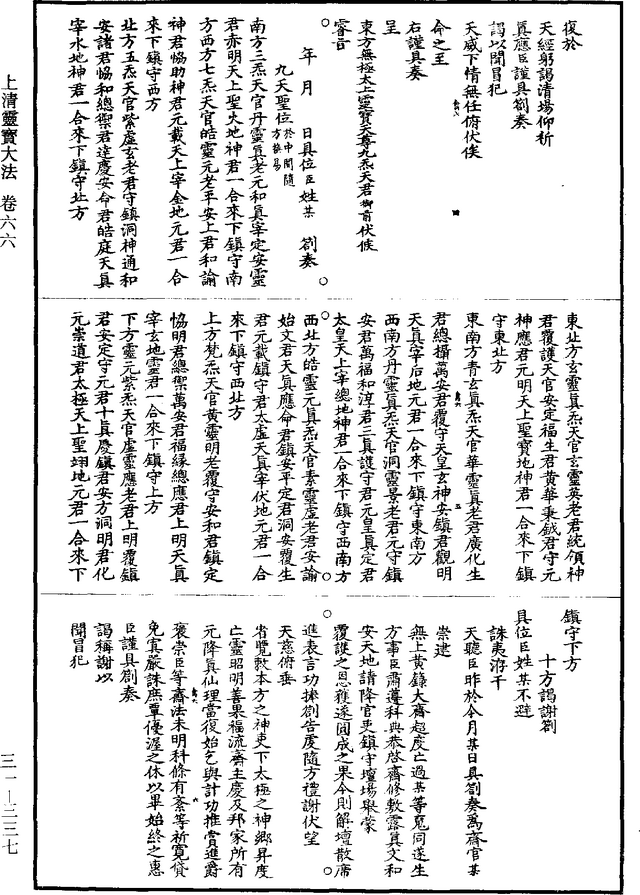 復於
天經躬謁清場仰祈
真應臣謹具劄奏
謁以聞冒犯
天威下情無任俯伏俟
命之至
右謹具奏
呈
東方無極太上靈寶天尊九炁天君御前伏候
睿旨
年 月 日具位臣姓某 劄奏
九天聖位於中間隨方換易
南方三炁天官丹靈真老元和真宰定安靈
君亦明天上聖火地神君一合來下鎮守南
方西方七炁天官皓靈元老平安上君和諭
神君恊助神君元載天上宰金地元君一合
來下鎮守西方
北方五炁天官紫虛玄老君守鎮洞神通和
安諸君恊和總禦君達慶安命君皓庭天真
宰水地神君一合來下鎮守北方
東北方玄靈真炁天官玄靈英老君統領神
君覆護天官安定福生君黃華秉鉞君守元
神應君元明天上聖寶地神君一合來下鎮
守東北方
東南方青玄真炁天官華靈真老君廣化生
君總攝萬安君覆守天皇玄神安鎮君觀明
天真宰后地元君一合來下鎮守東南方
西南方丹靈真炁天官洞靈景老君元守鎮
安君萬福和淳君三真護守君元皇真定君
太皇天上宰總地神君一合來下鎮守西南方
西北方皓靈元真炁天官素靈虛老君安諭
始文君天真應命君鎮安平定君洞安覆生
君元載鎮守君太虛天真宰伏地元君一合
來下鎮守西北方
上方梵炁天官黃靈明老覆守安和君鎮定
恊明君總禦萬安君福緣總應君上明天真
宰玄地靈君一合來下鎮守上方
下方靈元紫炁天官虛靈應老君上明覆鎮
君安定守元君十真慶鎮君安方洞明君化
元崇道君太極天上聖翊地元君一合來下
鎮守下方
十方謁謝劄
具位臣姓某不避
誅夷洊干
天聽臣昨於今月某日具劄奏為齋官某
崇建
無上黃籙大齋超度亡過某等冤同遂生
方事臣肅遵科典恭啓齋修敷露真文和
安天地請降官吏鎮守壇場舉蒙
覆護之恩雅遂圓成之果今則解壇散席
進表言功揀劄告虔隨方禮謝伏望
天慈俯垂
省覽敕本方之神吏下太極之神鄉昇度
亡靈昭明善果福流齋主慶及邦家所有
元降真仙理當復始乞與計功推賞進爵
褒崇臣等齋法未明科條有紊等祈寬貸
免寘嚴誅庶覃優渥之休以畢始終之惠
臣謹具劄奏
謁稱謝以
聞冒犯
上清靈寶大法 卷六六
三一—三三七